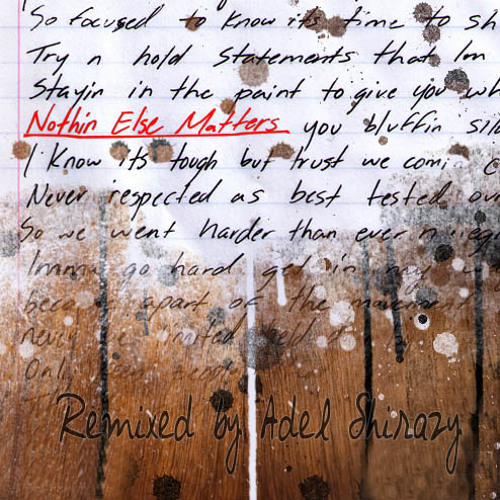 So focused to know its time to sh
Try n hold statements that Im
Stayin in the paint to give you wh
Nothin Else Matters you bluffin sil
I Know its tough but trust we comi
Never respected as best tested our
So we went harder than ever n
Imma go hard get in my
apart of the movement
never
Only
Remixed by Adel Shirazy